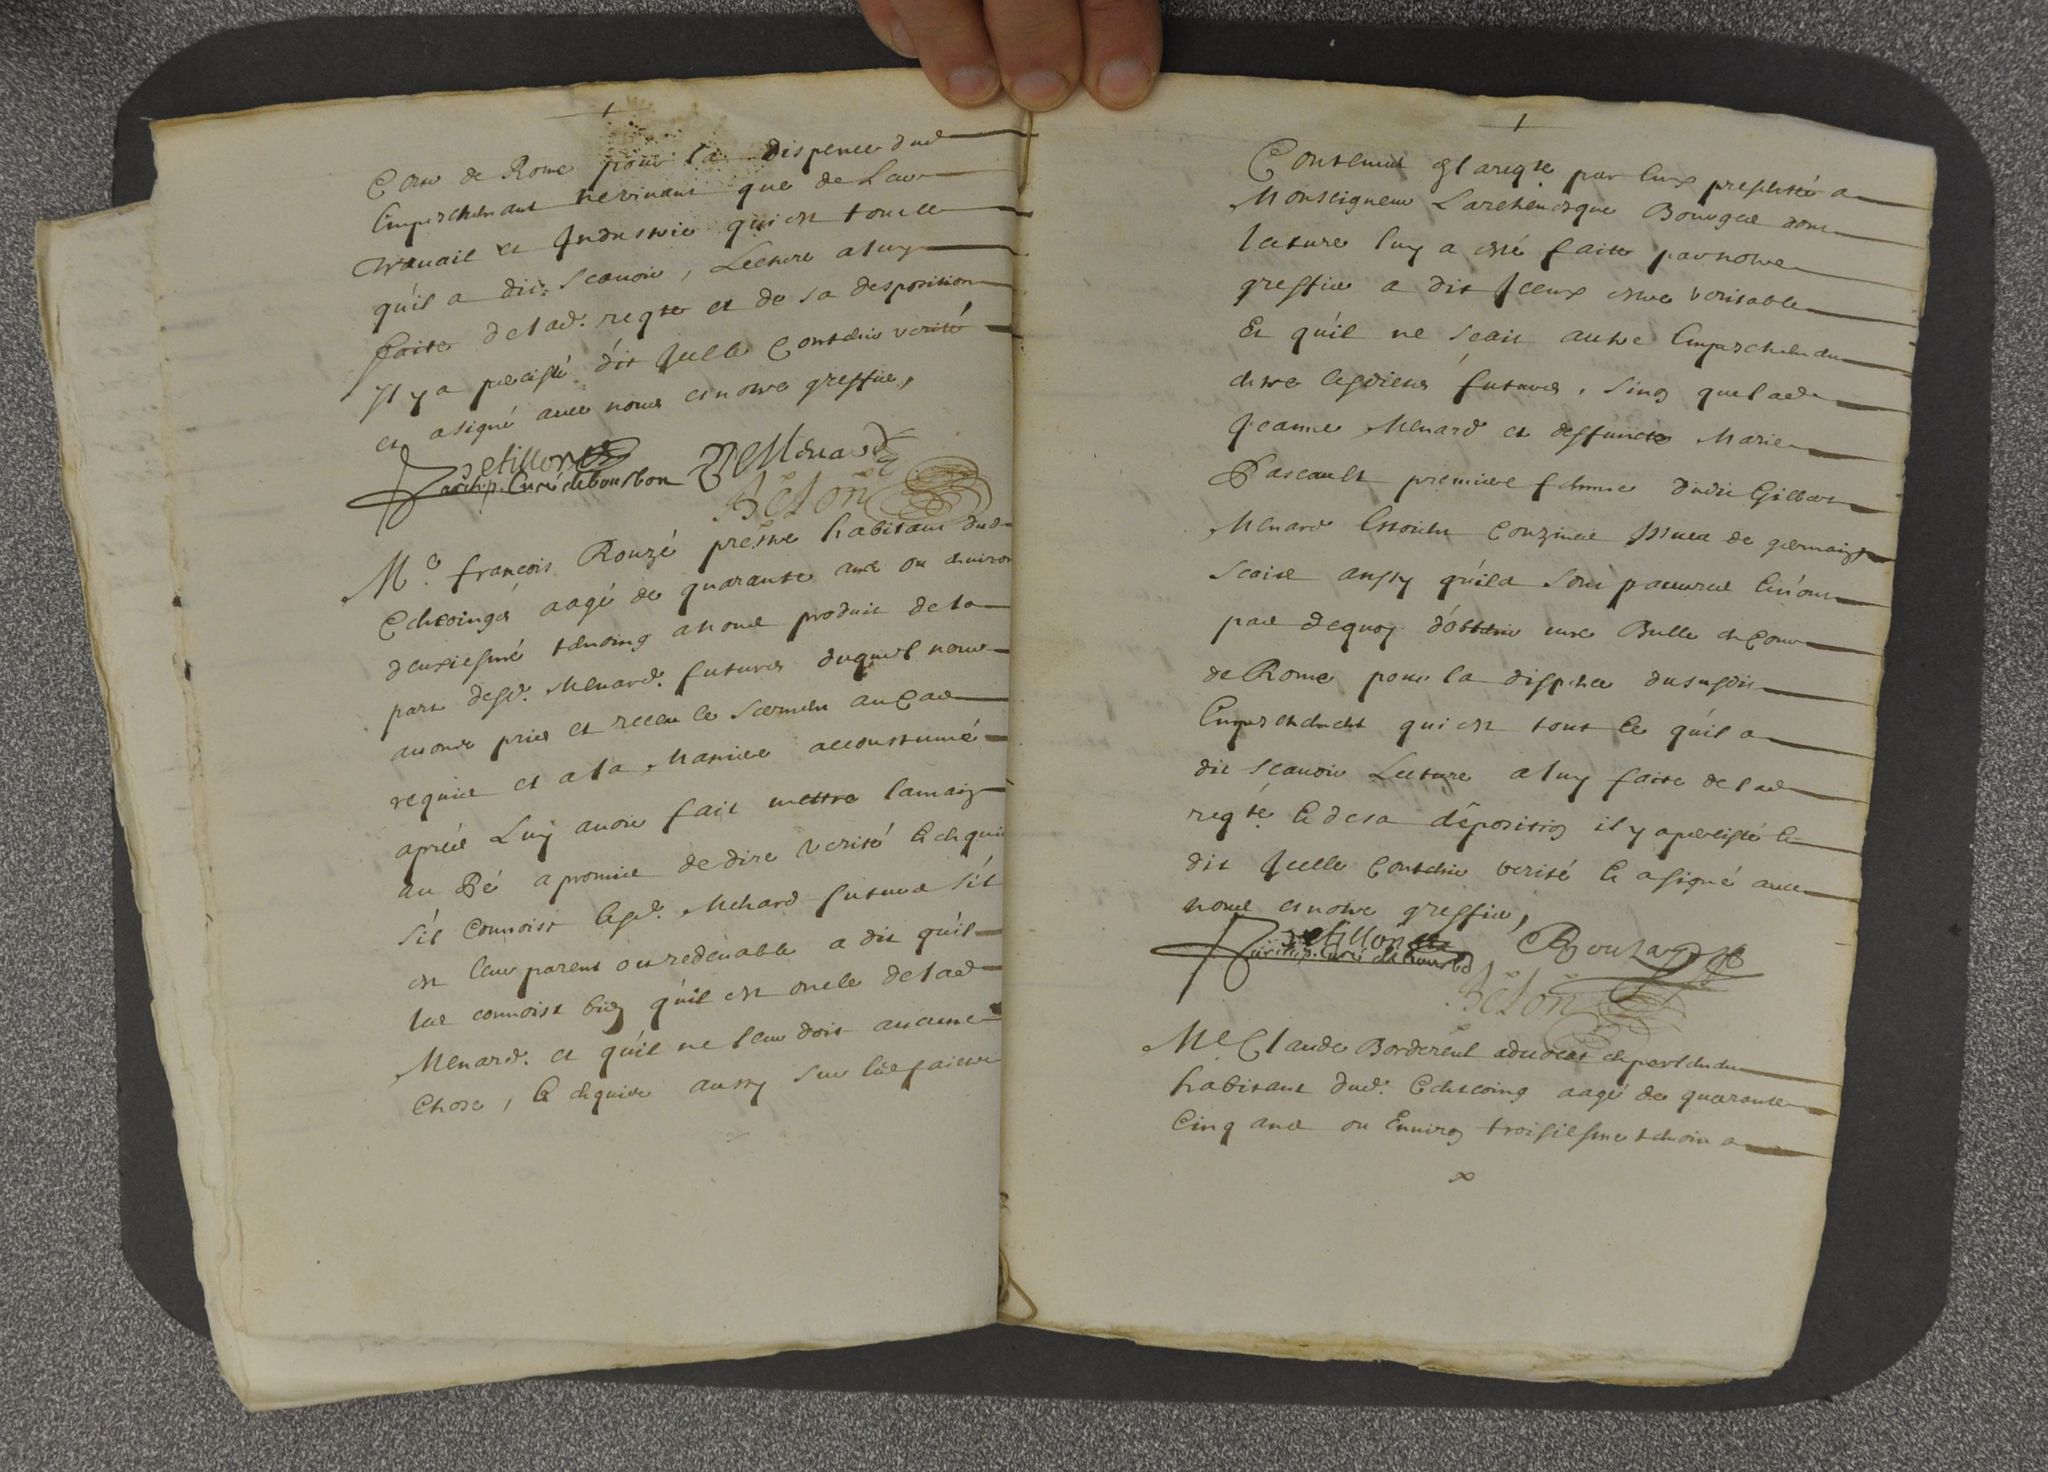 Cour de Rome pour la dispence dud
Empeschemant ne vivant que de Leur
travail et Industrie qui est tout ce
qu'il a dit scauoir, Lecture a luy
faite de lad. reqte et de sa desposition
Il y a percisté dit Icelle Contenir verité
et a signé auec nous et notre greffier,
Petillon
archip. Curé de bourbon Menard
Béton
Me. francois Rouzé prestre habitant dud
Chcoings aagé de quarante ans ou enuiron
deuxiesme tesmoing a nous produit de la
part desd. Menard. futures duquel nous
auons pris et receu le serment au cas
requis et a la maniere accoustumé
apres Luy auoir fait mettre la maing
au Pé a promis de dire verité Et enquis
s'il connoist lesd. Menard futures s'il
est leur parent ou redeuable a dit qu'il
les connoist bieg qu'il est oncle de lad
Menard. et qu'il ne leur doit aucune
chose, Et enquise aussy sur les faictz
Contenus En la reqte par Eux presentée a
Monseigneur L'archeuesque Bourges dont
lecture luy a esté faitte par notre
greffier a dit Iceux estre veritable
Et qu'il ne scait autre Empeschemen
entre lesdictes futures, sing que lad
Jeanne Menard et deffuncte Marie
Pascault premiere femme dudit Gilbert
Menard Estoient Couzines Issues de germaing
scait aussy qu'ils sont pauures Et n'ont
pas de quoy d'obtenir une Bulle en Cour
de Rome pour la dispence du susdit
Empeschement qui est tout ce qu'il a
dit scauoir Lecture a luy faite de lad
reqte Et de sa déposition il y a percisté Et
dit Icelle Contenir verité Et a signé auec
nous et notre greffier,
Petillon
archip. Curé de bourbon Rouzay
Béton
Me Claude Bordereul aduocat en parlement
habitant dud. Chcoing aagé de quarante
Cinq ans ou Enuirog troisiesme tesmoin a